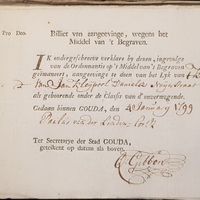 Pro Deo.
Billiet van aangeevinge, wegens het
Middel van 't Begraven.
IK ondergeschreeve verklare by deezen, ingevolge
van de Ordonnantie op 't Middel van 't Begraven
geëmaneert, aangeevinge te doen van het Lyk van
van Jan
als gehoorende onder de Classis van onvermogende.
Gedaan binnen GOUDA, den 4 January 1799
Paulus van der Linden
Ter Secretarye der Stad GOUDA,
geteikent op datum als boven.